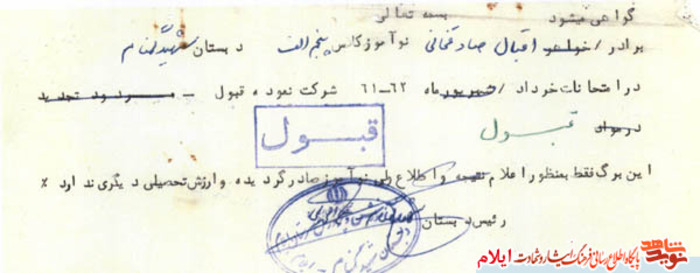 بسمه تعالی
گواهی میشود
برادر / خواهر اقبال صادقخانی نوآموز کلاس پنجم الف دبستان شهید گمنام
در امتحانات خرداد / شهریور ماه ۶۲-۶۱ شرکت نموده قبول - مردود تجدید
در مواد قبول
قبول
این برگ فقط بمنظور اعلام نتیجه و اطلاع ولی نوآموز صادر گردیده و ارزش تحصیلی دیگری ندارد %
رئیس دبستان
نوید شاهد
پایگاه اطلاع رسانی فرهنگ ایثار و شهادت ایلام